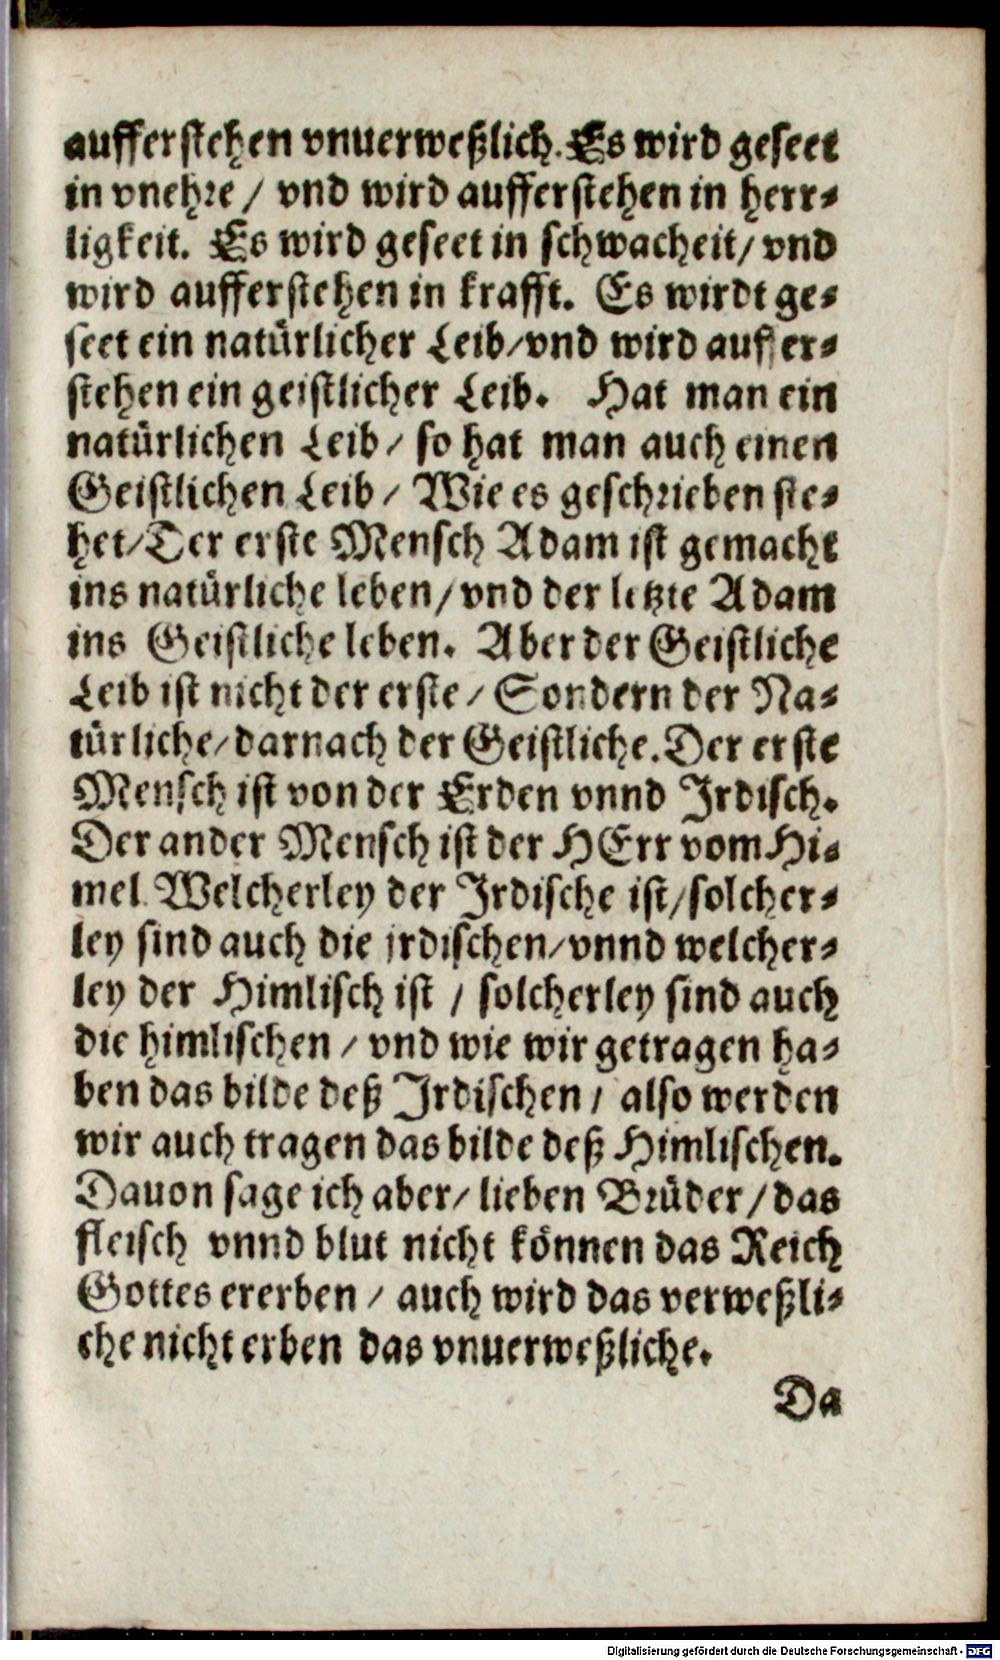 aufferstehen vnuerweßlich. Es wird geseet
in vnehre / vnd wird aufferstehen in herr-
ligkeit. Es wird geseet in schwacheit / vnd
wird aufferstehen in krafft. Es wirdt ge-
seet ein natürlicher Leib / vnd wird auffer-
stehen ein geistlicher Leib. Hat man ein
natürlichen Leib / so hat man auch einen
Geistlichen Leib / Wie es geschrieben ste-
het / Der erste Mensch Adam ist gemacht
ins natürliche leben / vnd der letzte Adam
ins Geistliche leben. Aber der Geistliche
Leib ist nicht der erste / Sondern der Na-
türliche / darnach der Geistliche. Der erste
Mensch ist von der Erden vnnd Irdisch.
Der ander Mensch ist der HErr vom Hi-
mel. Welcherley der Irdische ist / solcher-
ley sind auch die irdischen / vnnd welcher-
ley der Himlisch ist / solcherley sind auch
die himlischen / vnd wie wir getragen ha-
ben das bilde deß Irdischen / also werden
wir auch tragen das bilde deß Himlischen.
Dauon sage ich aber / lieben Brüder / das
fleisch vnnd blut nicht können das Reich
Gottes ererben / auch wird das verweßli-
che nicht erben das vnuerweßliche.
Da
Digitalisierung gefördert durch die Deutsche Forschungsgemeinschaft - DFG